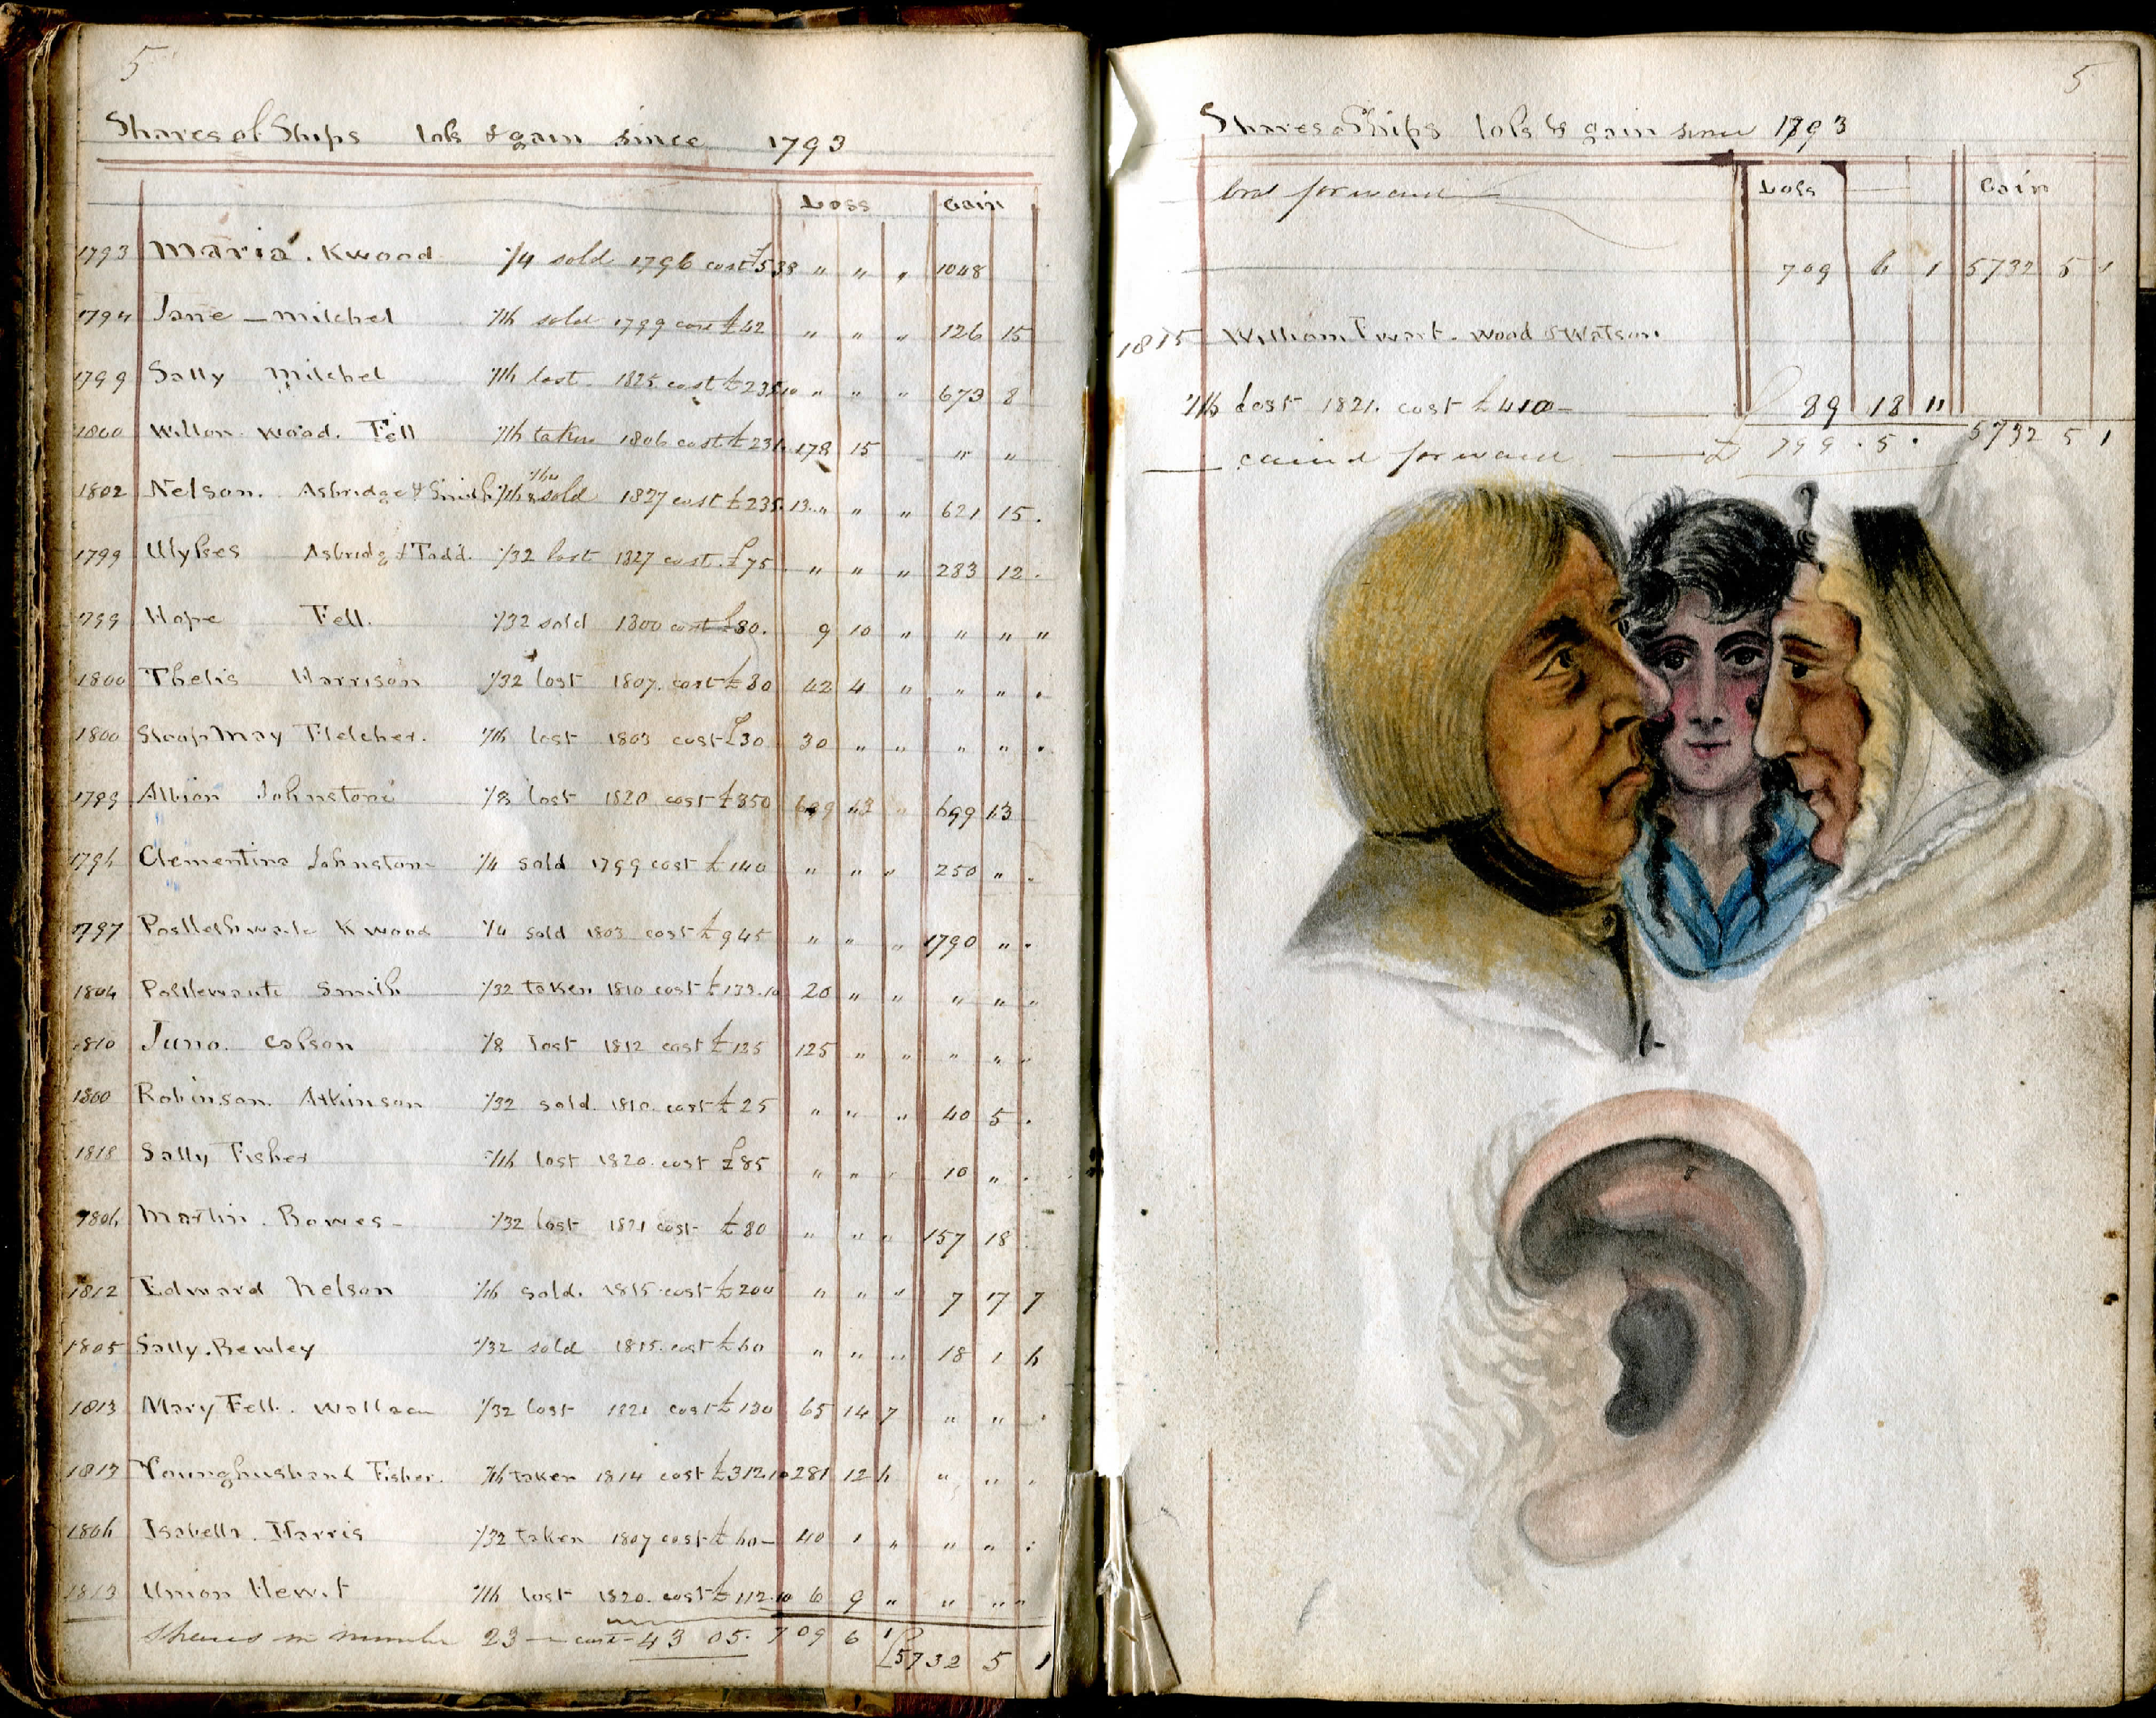 5
Shares of Ships loss & gain since 1793
Loss Gain
1793 Maria . Kwood 1/4 sold 1796 cost £538 " " " 1048
1794 Jane - Mitchel 1/16 sold 1799 cost £42 " " " 126 15
1799 Sally Mitchel 1/16 lost 1825 cost £235 10 " " " 673 8
1800 Wilson Wood. Fell 1/16 taken 1806 cost £231. 178 15 " "
1802 Nelson. Asbridge & Smith 1/16 & 1/64 sold 1827 cost £235. 13 " " " 621 15.
1799 Ulysses Asbridg & Todd. 1/32 lost 1827 cost. £75 " " " 283 12.
1799 Hope Fell. 1/32 sold 1800 cost £80. 9 10 " " " "
1800 Thetis Harrison 1/32 lost 1807. cost £80 42 4 " " " .
1800 Sloop May Fletcher. 1/16 lost 1803 cost £30 30 " " " " .
1789 Albion Johnstone 1/8 lost 1820 cost £350 699 13
1796 Clementina Johnston 1/4 sold 1799 cost £140 " " " 250 " .
1797 Postlethwaite K wood 1/4 sold 1803 cost £945 " " " 1790 " .
1804 Smith 1/32 taken 1810 cost £133.10 20 " " " " "
1810 Juno. Colson 1/8 lost 1812 cost £125 125 " " " " "
1800 Robinson. Atkinson 1/32 sold. 1810. cost £25 " " " 40 5 .
1818 Sally Fisher 1/16 lost 1820. cost £85 " " " 10 " .
1806 Martin. Bowes - 1/32 lost 1821 cost £80 " " " 157 18
1812 Edward Nelson 1/16 sold. 1815 cost £200 " " " 7 17 7
1805 Sally. Bewley 1/32 sold 1815. cost £60 " " " 18 1 6
1813 Mary Fell. Wallace 1/32 lost 1821 cost £130 65 14 7 " " .
1813 Younghusband Fisher. 1/16 taken 1814 cost £312.10 281 12 6 " " .
1806 Isabella. Harris 1/32 taken 1807 cost £60 - 40 1 " " " .
1813 Union Hewit 1/16 lost 1820. cost £112.10 6 9 " " " "
Shares in number 23 - cost - 4305. 709 6 1 £5732 5 1
5
Shares of Ships loss & gain since 1793
brot forward Loss Gain
709 6 1 5732 5 1
1815 William Ewart. Wood & Watson.
1/16 Lost 1821. cost £410 - 89 18 11
carried forward £ 799 . 5 . 5732 5 1